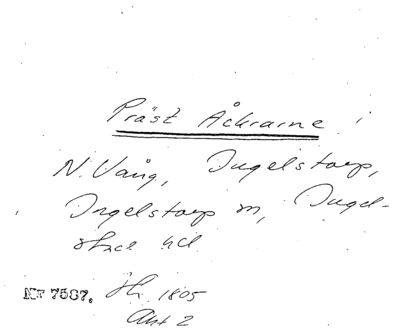 Präst Åkrarne
N. Vång, Ingelstorp,
Ingelstorp sn, Ingel-
stads hd
Nr 7587. Sk. 1805
Akt 2